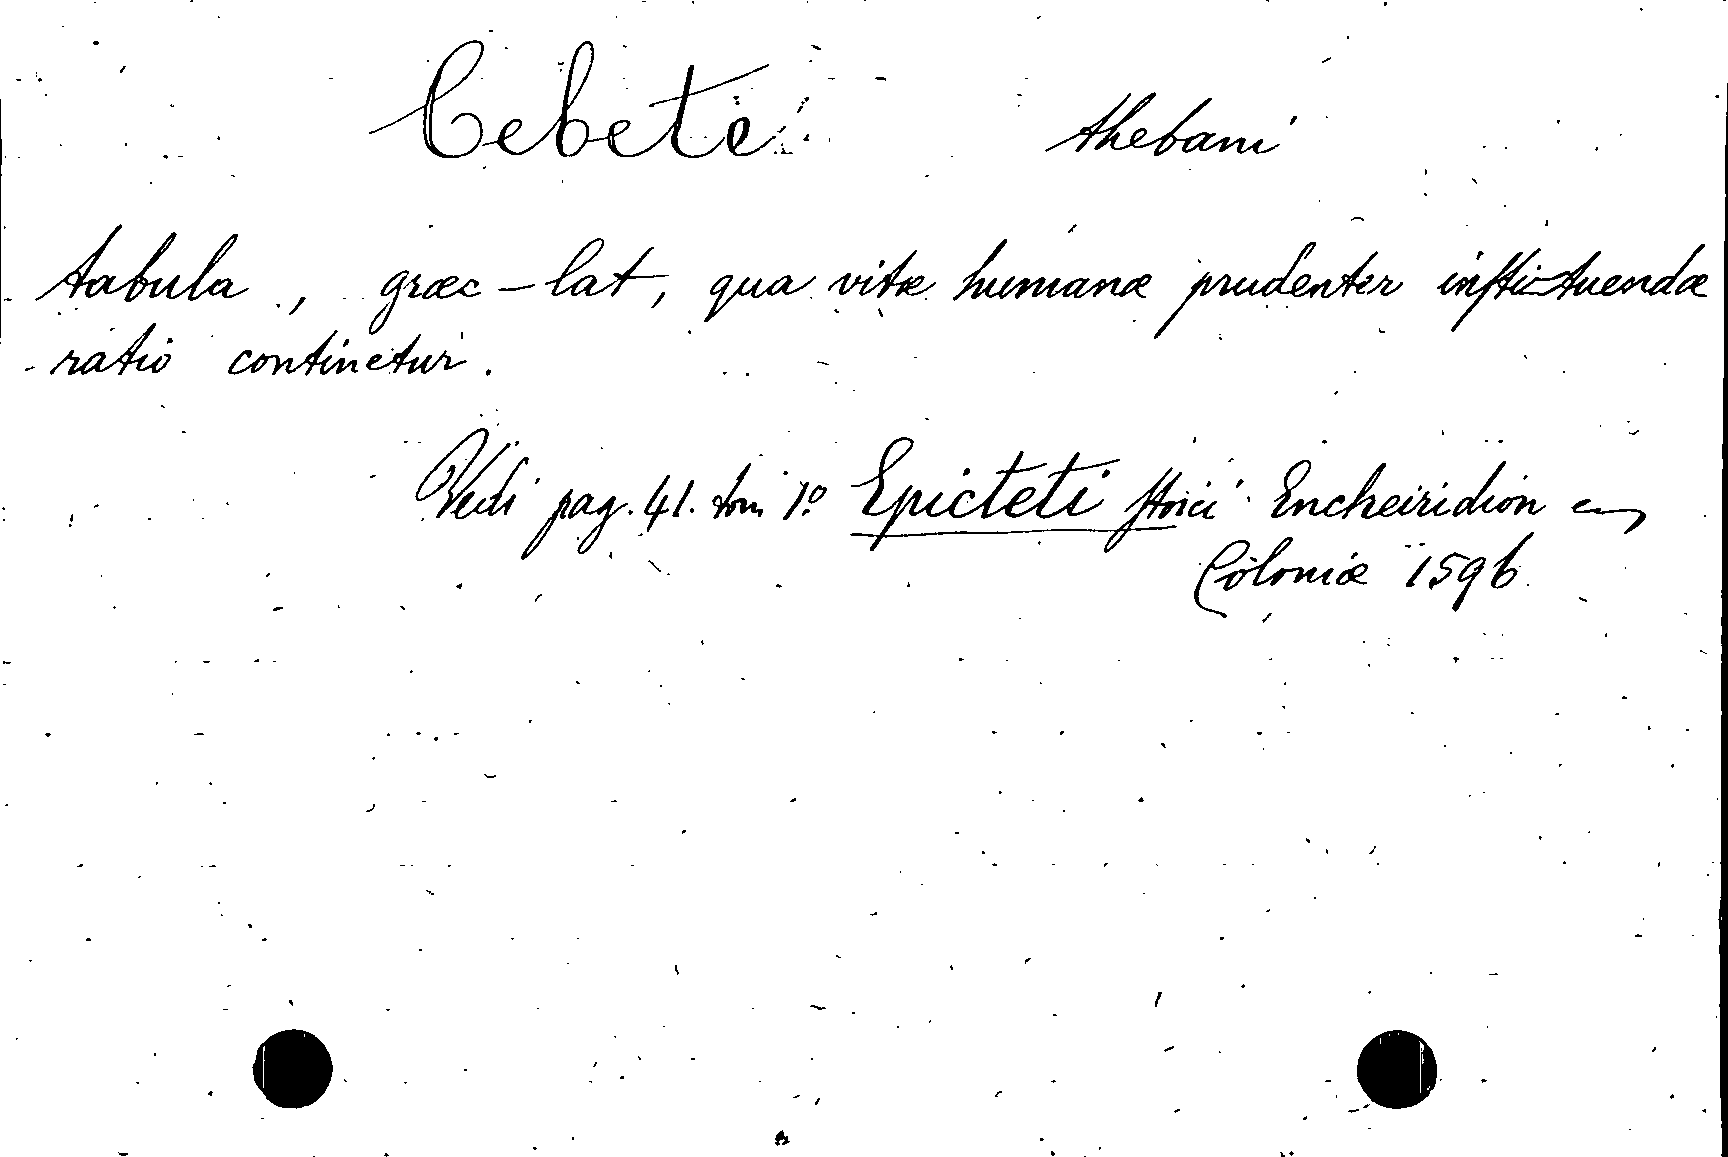 Cebete thebani
tabula, græc-lat, qua vitæ humanæ prudenter instituendæ
ratio continetur.
Vedi pag. 41. tom 1º Epicteti stoici Encheiridion
Coloniæ 1596